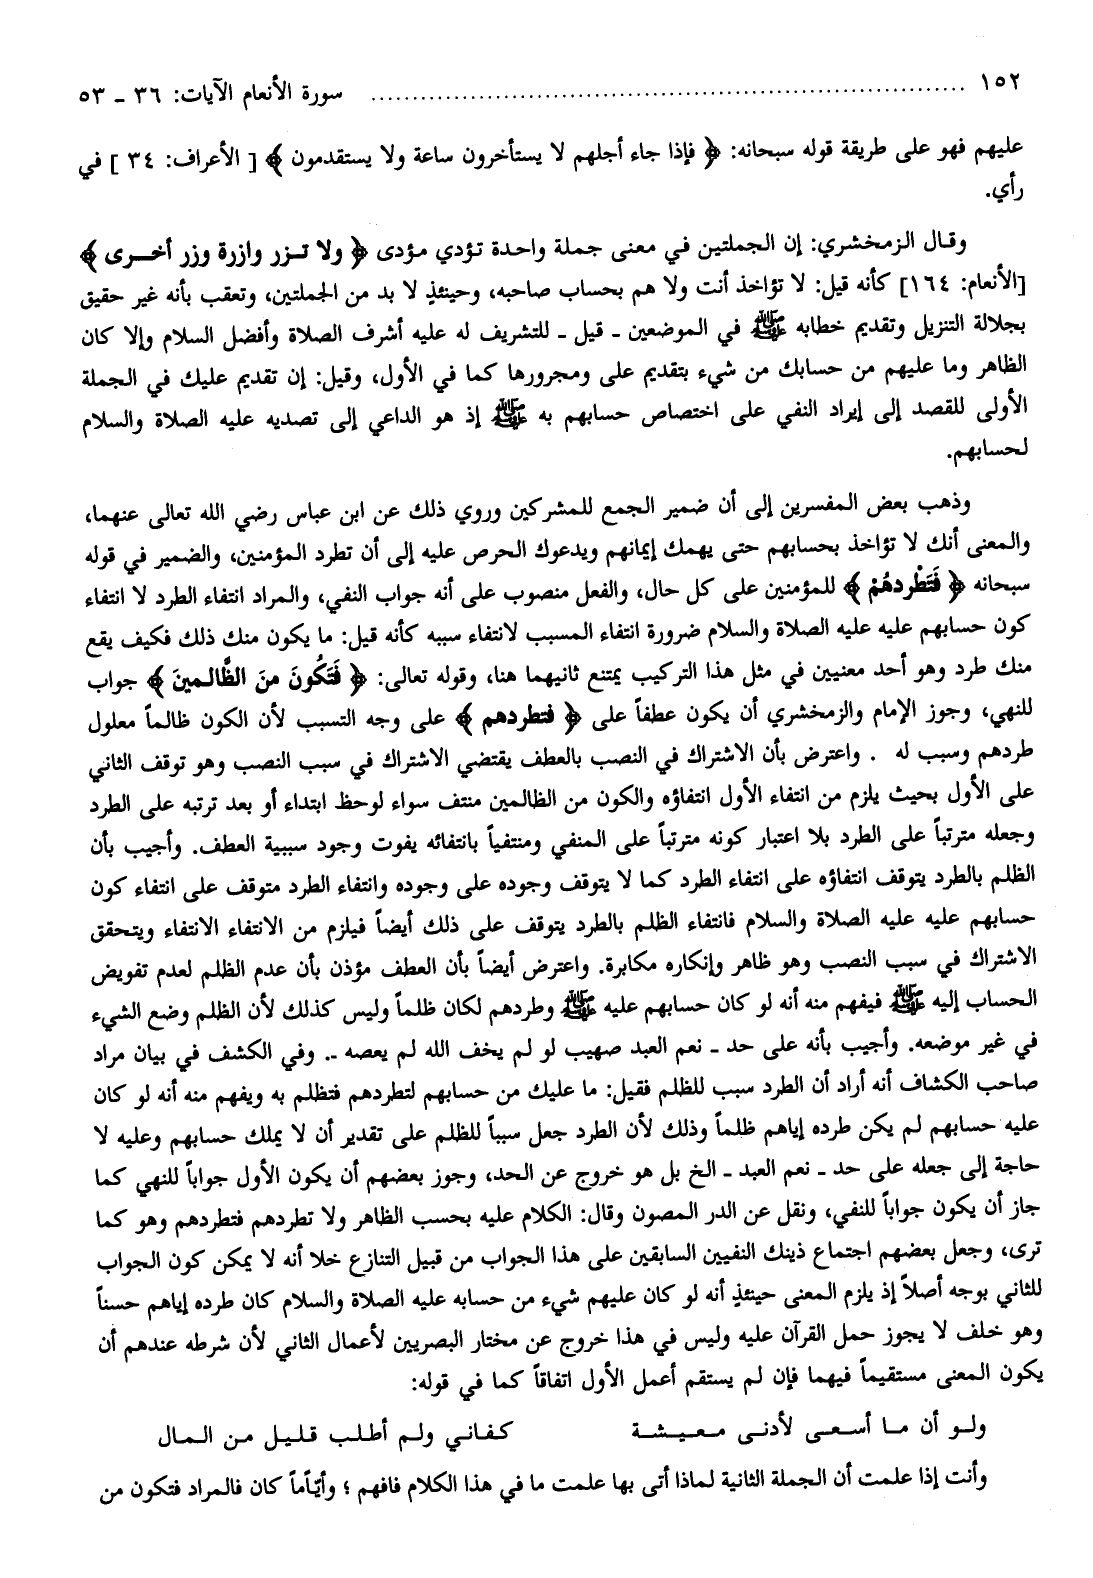 ١٥٢ ........................................................ سورة الأنعام الآيات: ٣٦ ـ ٥٣
عليهم فهو على طريقة قوله سبحانه: ﴿ فإذا جاء أجلهم لا يستأخرون ساعة ولا يستقدمون ﴾ [ الأعراف: ٣٤ ] في
رأي.
وقال الزمخشري: إن الجملتين في معنى جملة واحدة تؤدي مؤدى ﴿ ولا تزر وازرة وزر أخرى ﴾
[الأنعام: ١٦٤] كأنه قيل: لا تؤاخذ أنت ولا هم بحساب صاحبه، وحينئذٍ لا بد من الجملتين، وتعقب بأنه غير حقيق
بجلالة التنزيل وتقديم خطابه ﷺ في الموضعين ـ قيل ـ للتشريف له عليه أشرف الصلاة وأفضل السلام وإلا كان
الظاهر وما عليهم من حسابك من شيء بتقديم على ومجرورها كما في الأول، وقيل: إن تقديم عليك في الجملة
الأولى للقصد إلى إيراد النفي على اختصاص حسابهم به ﷺ إذ هو الداعي إلى تصديه عليه الصلاة والسلام
لحسابهم.
وذهب بعض المفسرين إلى أن ضمير الجمع للمشركين وروي ذلك عن ابن عباس رضي الله تعالى عنهما،
والمعنى أنك لا تؤاخذ بحسابهم حتى يهمك إيمانهم ويدعوك الحرص عليه إلى أن تطرد المؤمنين، والضمير في قوله
سبحانه ﴿ فَتَطْردهُمْ ﴾ للمؤمنين على كل حال، والفعل منصوب على أنه جواب النفي، والمراد انتفاء الطرد لا انتفاء
كون حسابهم عليه عليه الصلاة والسلام ضرورة انتفاء المسبب لانتفاء سببه كأنه قيل: ما يكون منك ذلك فكيف يقع
منك طرد وهو أحد معنيين في مثل هذا التركيب يمتنع ثانيهما هنا، وقوله تعالى: ﴿ فَتَكُونَ منَ الظَّالمينَ ﴾ جواب
للنهي، وجوز الإمام والزمخشري أن يكون عطفاً على ﴿ فتطردهم ﴾ على وجه التسبب لأن الكون ظالماً معلول
طردهم وسبب له . واعترض بأن الاشتراك في النصب بالعطف يقتضي الاشتراك في سبب النصب وهو توقف الثاني
على الأول بحيث يلزم من انتفاء الأول انتفاؤه والكون من الظالمين منتف سواء لوحظ ابتداء أو بعد ترتبه على الطرد
وجعله مترتباً على الطرد بلا اعتبار كونه مترتباً على المنفي ومنتفياً بانتفائه يفوت وجود سببية العطف. وأجيب بأن
الظلم بالطرد يتوقف انتفاؤه على انتفاء الطرد كما لا يتوقف وجوده على وجوده وانتفاء الطرد متوقف على انتفاء كون
حسابهم عليه عليه الصلاة والسلام فانتفاء الظلم بالطرد يتوقف على ذلك أيضاً فيلزم من الانتفاء الانتفاء ويتحقق
الاشتراك في سبب النصب وهو ظاهر وإنكاره مكابرة. واعترض أيضاً بأن العطف مؤذن بأن عدم الظلم لعدم تفويض
الحساب إليه ﷺ فيفهم منه أنه لو كان حسابهم عليه ﷺ وطردهم لكان ظلماً وليس كذلك لأن الظلم وضع الشيء
في غير موضعه. وأجيب بأنه على حد ـ نعم العبد صهيب لو لم يخف الله لم يعصه ـ. وفي الكشف في بيان مراد
صاحب الكشاف أنه أراد أن الطرد سبب للظلم فقيل: ما عليك من حسابهم لتطردهم فتظلم به ويفهم منه أنه لو كان
عليه حسابهم لم يكن طرده إياهم ظلماً وذلك لأن الطرد جعل سبباً للظلم على تقدير أن لا يملك حسابهم وعليه لا
حاجة إلى جعله على حد ـ نعم العبد ـ الخ بل هو خروج عن الحد، وجوز بعضهم أن يكون الأول جواباً للنهي كما
جاز أن يكون جواباً للنفي، ونقل عن الدر المصون وقال: الكلام عليه بحسب الظاهر ولا تطردهم فتطردهم وهو كما
ترى، وجعل بعضهم اجتماع ذينك النفيين السابقين على هذا الجواب من قبيل التنازع خلا أنه لا يمكن كون الجواب
للثاني بوجه أصلاً إذ يلزم المعنى حينئذٍ أنه لو كان عليهم شيء من حسابه عليه الصلاة والسلام كان طرده إياهم حسناً
وهو خلف لا يجوز حمل القرآن عليه وليس في هذا خروج عن مختار البصريين لأعمال الثاني لأن شرطه عندهم أن
يكون المعنى مستقيماً فيهما فإن لم يستقم أعمل الأول اتفاقاً كما في قوله:
ولو أن ما أسعى لأدنى معيشة كفاني ولم أطلب قليل من المال
وأنت إذا علمت أن الجملة الثانية لماذا أتى بها علمت ما في هذا الكلام فافهم ؛ وأيّاماً كان فالمراد فتكون من